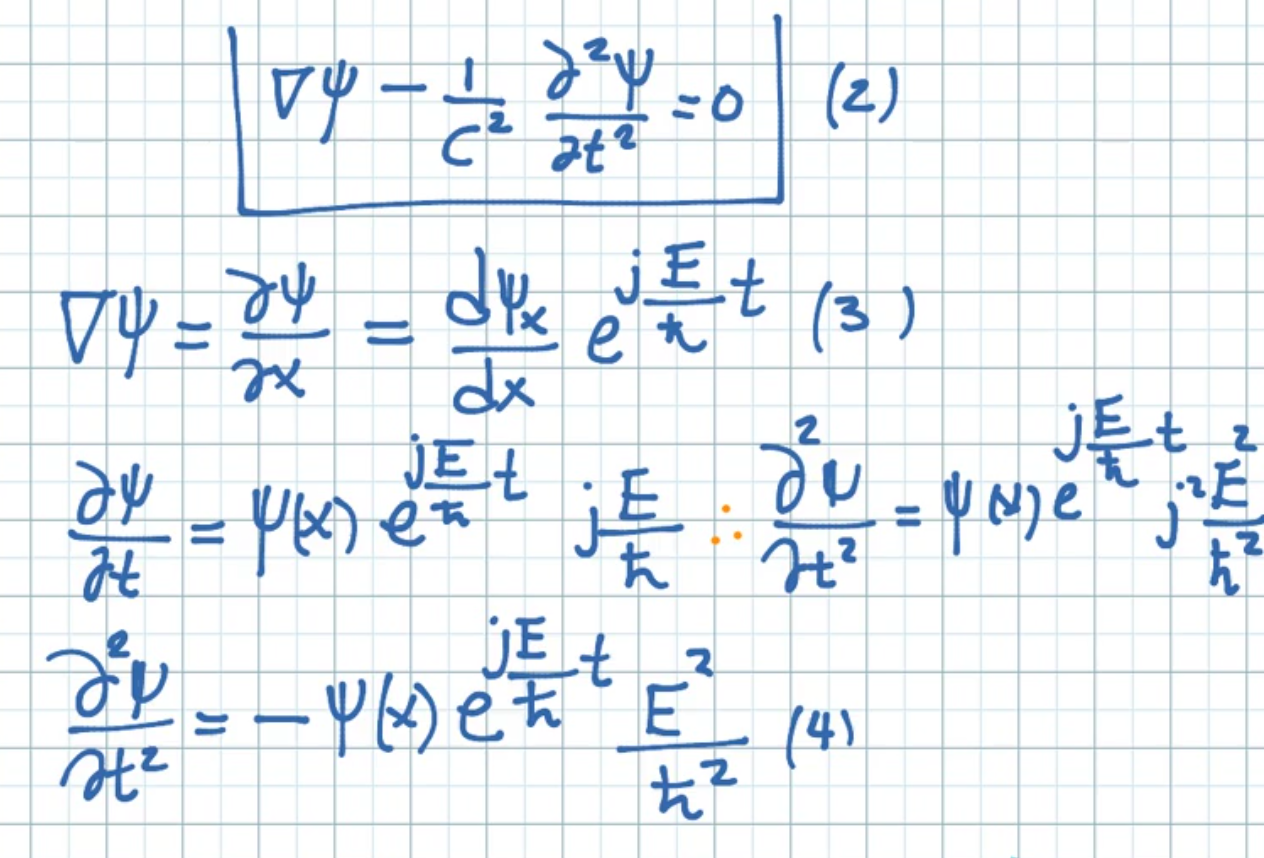 ∇ψ − 1/c² ∂²ψ/∂t² = 0 (2)
∇ψ = ∂ψ/∂x = dψₓ/dx e^(j E/ħ t) (3)
∂ψ/∂t = ψ(x) e^(jE/ħ t) j E/ħ ∴ ∂²ψ/∂t² = ψ(x) e^(jE/ħ t) j² E²/ħ²
∂²ψ/∂t² = − ψ(x) e^(jE/ħ t) E²/ħ² (4)